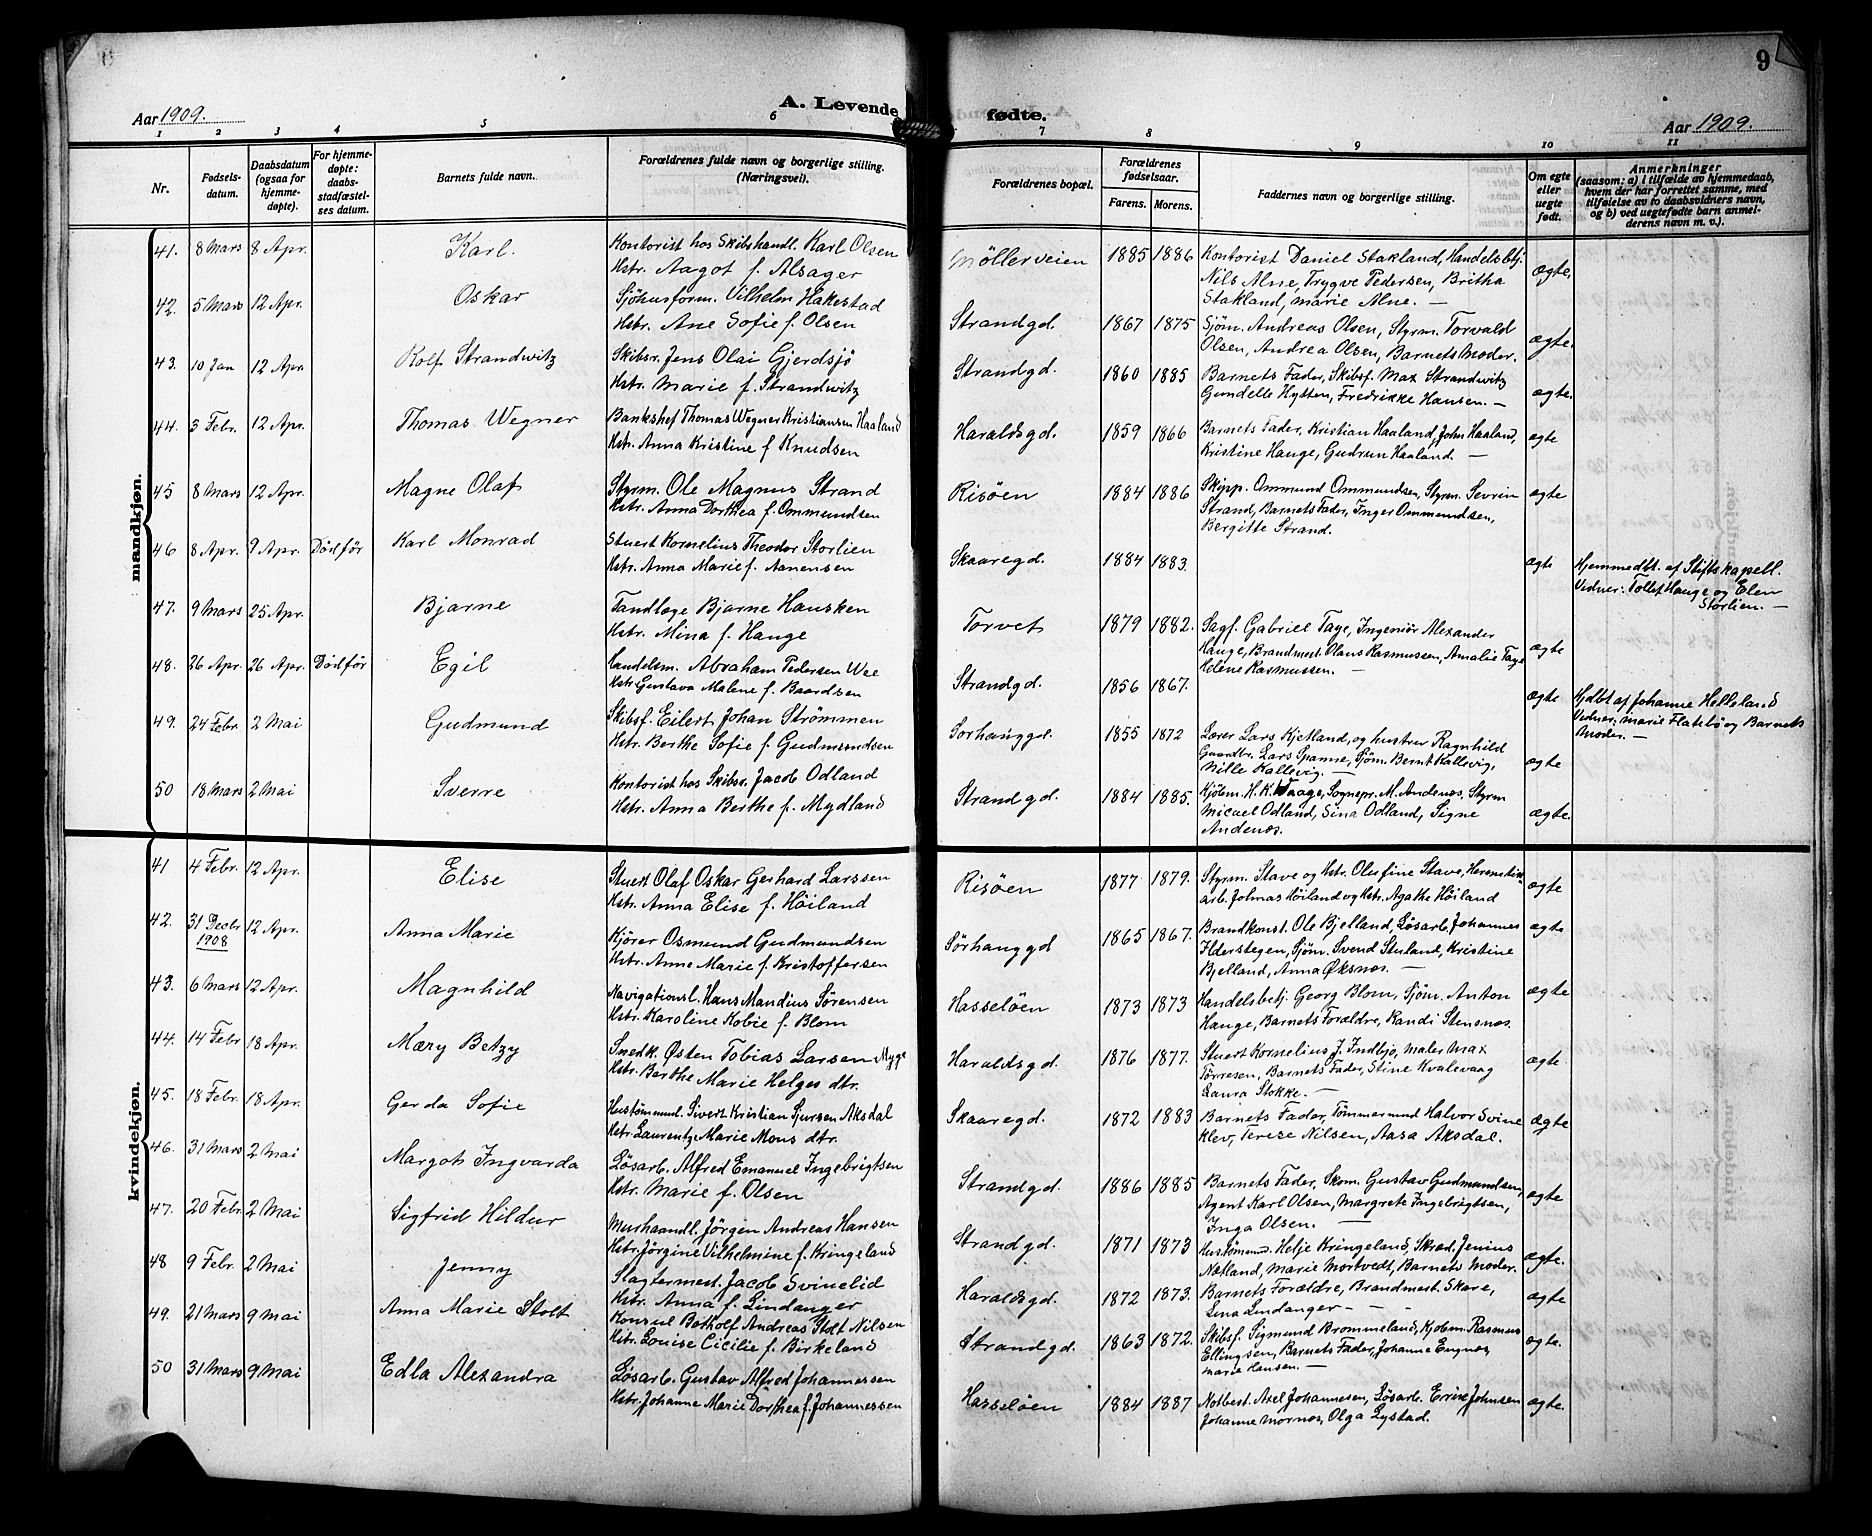 9
Aar 1909.
A. Levende fødte.
Aar 1909.
1 2 3 4 5 6 7 8 9 10 11
Nr.
Fødselsdatum.
Daabsdatum (ogsaa for hjemmedøpte).
For hjemmedøpte: daabsstadfæstelses datum.
Barnets fulde navn.
Forældrenes fulde navn og borgerlige stilling. (Næringsvei).
Forældrenes bopæl.
Forældrenes fødselsaar.
Farens. Morens.
Faddernes navn og borgerlige stilling.
Om egte eller uegte født.
Anmerkninger (saasom: a) i tilfælde av hjemmedaab, hvem der har forrettet samme, med tilføielse av to daabsvidners navn, og b) ved uegtefødte barn anmelderens navn m. v.).
mandkjøn.
41. 8 Mars 8 Apr. Karl. Kontorist hos Skibshandl. Karl Olsen Møllerveien 1885 1886 Kontorist Daniel Stakland, Handelsbtj. ægte.
Hstr. Aagot f. Alsager Nils Alne, Trygve Pedersen, Britha
Stakland, Marie Alne. —
42. 5 Mars 12 Apr. Oskar Sjøhusform. Vilhelm Hakestad Strandgd. 1867 1875 Sjøm. Andreas Olsen, Styrm. Torvald ægte.
Hstr. Ane Sofie f. Olsen Olsen, Andrea Olsen, Barnets Moder.
43. 10 Jan 12 Apr. Rolf Strandwitz Skibsr. Jens Olai Gjerdsjø Strandgd. 1860 1885 Barnets Fader, Skibsf. Max Strandwitz ægte.
Hstr. Marie f. Strandwitz Gundelle Hytten, Fredrikke Hansen. —
44. 3 Febr. 12 Apr. Thomas Wegner Bankshef Thomas Wegner Kristiansen Haaland Haraldsgd. 1859 1866 Barnets Fader, Kristian Haaland, John Haaland, ægte
Hstr. Anna Kristine f Knudsen Kristine Hauge, Gudrun Haaland. —
45 8 Mars 12 Apr. Magne Olaf Styrm. Ole Magnus Strand Risøen 1884 1886 Skipp. Ommund Ommundsen, Styrm. Sevrin ægte
Hstr. Anna Dorthea f. Ommundsen Strand, Barnets Fader, Inger Ommundsen,
Bergitte Strand.
46 8 Apr. 9 Apr. Død før Karl Monrad Stuert Kornelius Theodor Storlien Skaaregd. 1884 1883. ægte Hjemmedbt. af Stiftskapell.
Hstr. Anna Marie f. Aanensen Vidner: Tollef Hauge og Elen
Storlien. —
47. 9 Mars 25 Apr. Bjarne Tandlæge Bjarne Hausken Torvet 1879 1882. Sagf. Gabriel Taye, Ingeniør Alexander ægte
Hstr. Mina f. Hauge Hauge, Brandmest. Olaus Rasmussen, Amalie Taye
Helene Rasmussen. —
48. 26 Apr. 26 Apr. Død før Egil Handelsm. Abraham Pedersen Wee Strandgd. 1856 1867. ægte Hjdbt af Johanne Helleland
Hstr. Gustava Malene f. Baardsen Vidner: Marie Flatebø og Barnets
Moder. —
49. 24 Febr. 2 Mai Gudmund Skibsf. Eilert Johan Strømmen Sørhauggd. 1855 1872 Lærer Lars Kjetland, og hustrue Ragnhild ægte
Hstr. Berthe Sofie f. Gudmundsen Lars Spanne, Sjøm. Bernt Kallevig,
Nille Kallevig. —
50 18 Mars 2 Mai Sverre Kontorist hos Skibsr. Jacob Odland Strandgd. 1884 1885. Kjøbm. H. K. Waage, Sognepr. M. Andenæs, Styrm ægte.
Hstr. Anna Berthe f. Mydland Micael Odland, Sina Odland, Signe
Andenæs.
kvindekjøn.
41 4 Febr. 12 Apr. Elise Stuert Olaf Oskar Gerhard Larssen Risøen 1877 1879. Styrm. Stave og Hstr. Olufine Stave, Hermetik= ægte
Hstr. Anna Elise f. Høiland arb. Johnas Høiland og Hstr. Agathe Høiland
42. 31 Decbr 1908 12 Apr. Anna Marie Kjører Osmund Gudmundsen Sørhauggd 1865 1867. Brandkonst. Ole Bjelland, Løsarb. Johannes ægte
Hstr. Anne Marie f. Kristoffersen Ilderstegen, Sjøm. Svend Stusland, Kristine
Bjelland, Anna Øksnæs. —
43. 6 Mars 12 Apr. Magnhild Navigationsl. Hans Mandius Sørensen Hasseløen 1873 1873 Handelsbetj. Georg Blom, Sjøm. Anton ægte
Hstr. Karoline Kobie f. Blom Hauge, Barnets Forældre, Randi Stensnæs.
44. 14 Febr 18 Apr. Mæry Betzy Snedk. Østen Tobias Larsen Myge Haraldsgd. 1876 1877. Stuert Kornelius J. Indbjo, Maler Max ægte
Hstr. Berthe Marie Helges dtr. Tørresen, Barnets Fader, Stine Kvalevaag
Laura Stokke. —
45. 18 Febr. 18 Apr. Gerda Sofie Hustømmerm. Sivert Kristian Sjursen Aksdal Skaaregd. 1872 1883 Barnets Fader, Tømmermand Halvor Svine ægte
Hstr. Laurentze Marie Mons dtr. klev, Terese Nilsen, Aasa Aksdal.
46. 31 Mars 2 Mai Margoth Ingvarda Løsarb. Alfred Emanuel Ingebrigtsen Strandgd. 1886 1885 Barnets Fader, Skom. Gustav Gudmundsen, ægte
Hstr. Marie f. Olsen Agent Karl Olsen, Margrete Ingebrigtsen,
Inga Olsen. —
47. 20 Febr. 2 Mai Sigfrid Hildur Murhaandl. Jørgen Andreas Hansen Strandgd. 1871 1873 Hustømmerm. Helje Kringeland, Skræd. Jenius ægte.
Hstr. Jørgine Vilhelmine f. Kringeland Nætland, Marie Mortvedt, Barnets Moder.
48 9 Febr. 2 Mai Jenny Slagtermest. Jacob Svinelid Haraldsgd. 1872 1873. Barnets Forældre, Brandmest. Skare, ægte
Hstr. Anna f. Lindanger Lina Lindanger —
49. 21 Mars 9 Mai Anna Marie Stolt Konsul Botholf Andreas Stolt Nilsen Strandgd. 1863 1872. Skibsf. Sigmund Brommeland, Kjøbm. Rasmus ægte.
Hstr. Louise Cicilie f. Birkeland Ellingsen, Barnets Fader, Johanne Engnæs
Marie Hansen. —
50 31 Mars 9 Mai Edla Alexandra Løsarb. Gustav Alfred Johannessen Hasseløen 1884 1887 Notbest. Axel Johannesen, Løsarb. Erine Johnsen ægte.
Hstr. Johanne Marie Dorthea f. Johannessen Johanne Mornes, Olga Lystad.